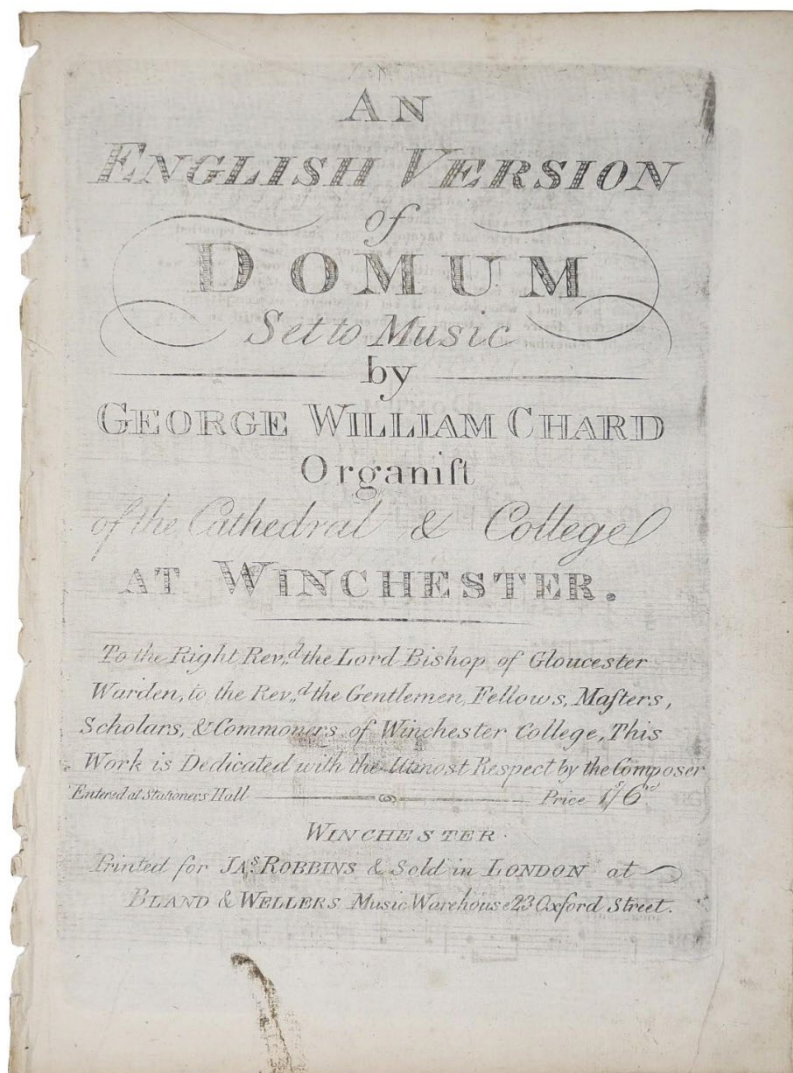 AN
ENGLISH VERSION
of
DOMUM
Set to Music
by
GEORGE WILLIAM CHARD
Organiſt
of the Cathedral & College
AT WINCHESTER.
To the Right Rev.d the Lord Bishop of Gloucester
Warden, to the Rev.d the Gentlemen, Fellows, Maſters,
Scholars, & Commoners of Winchester College, This
Work is Dedicated with the Utmost Respect by the Composer
Entered at Stationers Hall Price 1s/6d
WINCHESTER
Printed for JAs. ROBBINS & Sold in LONDON at
BLAND & WELLERS Music Warehouse 23 Oxford Street.